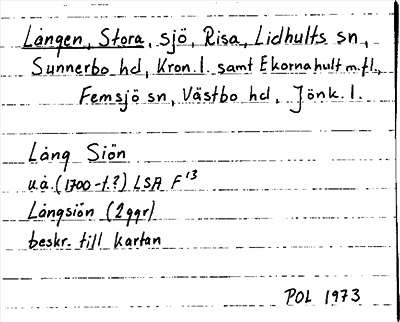 Lången, Stora, sjö, Risa, Lidhults sn,
Sunnerbo hd, Kron. l. samt Ekornahult m.fl.,
Femsjö sn, Västbo hd, Jönk. l.
Lång Siön
u.å. (1700-t.?) LSA F'13
Långsiön (2ggr)
beskr. till kartan
POL 1973